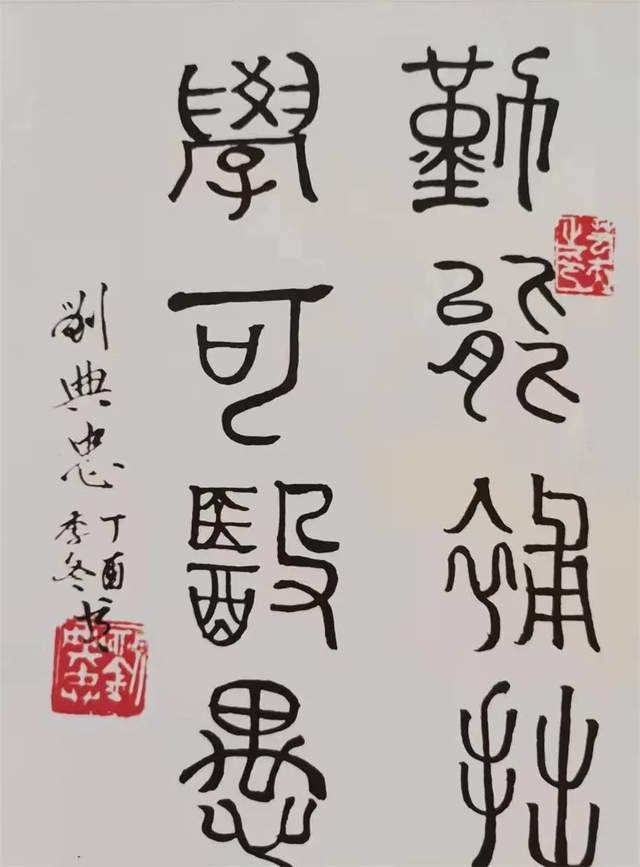 勤能補拙
學可醫愚
劉典忠
丁酉
季冬書